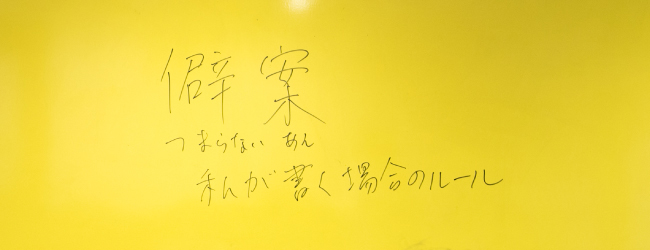 僻案
つまらない あん
私が書く場合のルール